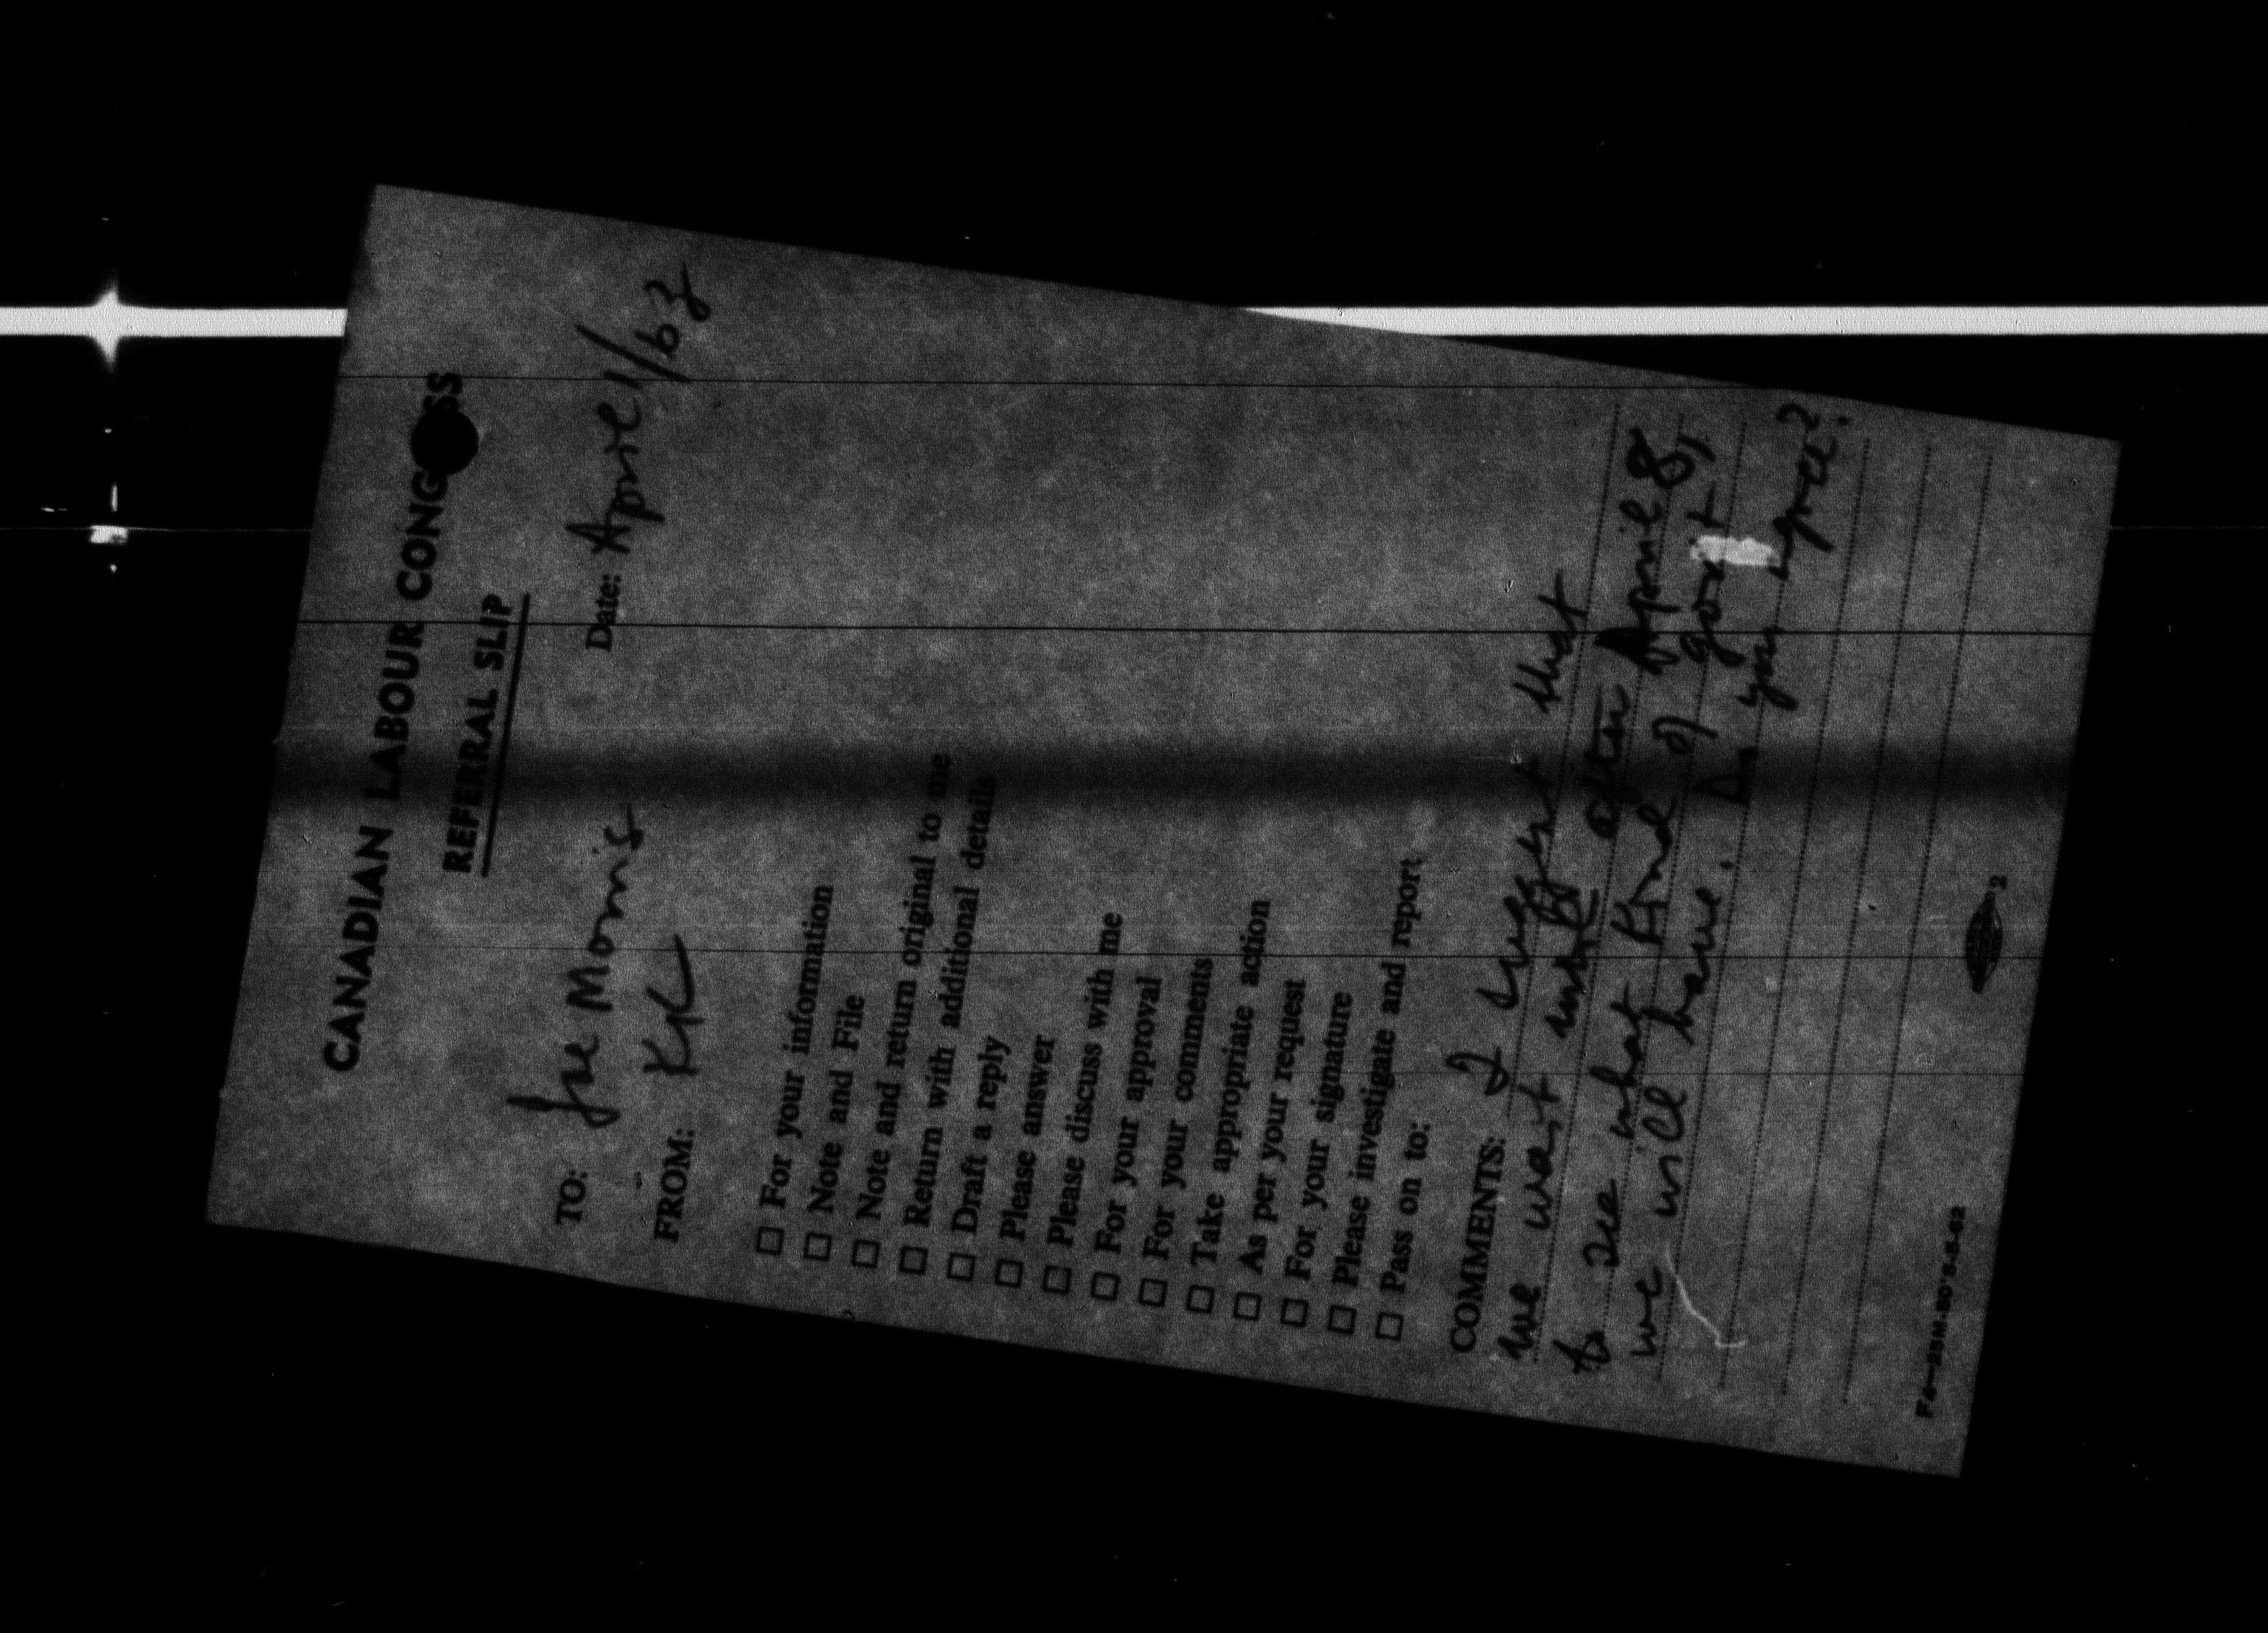 CANADIAN LABOUR CONG SS
REFERRAL SLIP
Date: April 1/63
TO: Joe Morris
FROM: KK
☐ For your information
☐ Note and File
☐ Note and return original to me
☐ Return with additional details
☐ Draft a reply
☐ Please answer
☐ Please discuss with me
☐ For your approval
☐ For your comments
☐ Take appropriate action
☐ As per your request
☐ For your signature
☐ Please investigate and report
☐ Pass on to:
COMMENTS: I suggest that
we wait until after April 8,
to see what kind of gov't,
we will have. Do you agree?
F4—25M.80's-5-62
2